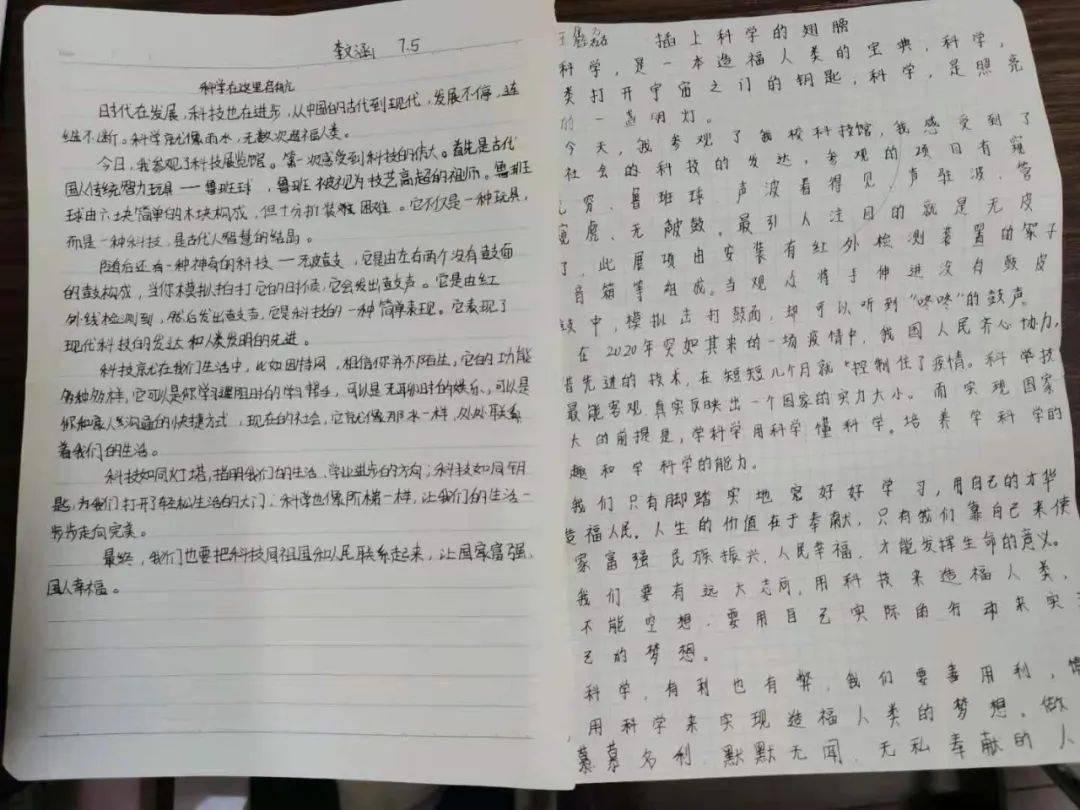 李文涵 7.5
科学在这里启航
时代在发展,科技也在进步,从中国的古代到现代,发展不停,连
绵不断。科学就像雨水,无数次造福人类。
今日,我参观了科技展览馆。第一次感受到科技的伟大。首先是古代
国人传统智力玩具——鲁班球,鲁班被视为技艺高超的祖师。鲁班
球由六块简单的木块构成,但十分拆装困难。它不仅是一种玩具,
而是一种科技,是古代人智慧的结晶。
随后还有一种神奇的科技——无皮鼓,它是由左右两个没有鼓面
的鼓构成,当你模拟拍打它的时候,它会发出鼓声。它是由红
外线检测到,然后发出鼓声,它是科技的一种简单表现。它表现了
现代科技的发达和人类发明的先进。
科技就在我们生活中,比如因特网,相信你并不陌生,它的功能
多种多样,它可以是你学习遇阻时的学习帮手,可以是无聊时的娱乐,可以是
你和家人沟通的快捷方式,现在的社会,它就像那水一样,处处联系
着我们的生活。
科技如同灯塔,指明我们的生活、学业进步的方向;科技如同钥
匙,为我们打开了轻松生活的大门;科学也像阶梯一样,让我们的生活一
步步走向完美。
最终,我们也要把科技同祖国和人民联系起来,让国家富强,
国人幸福。
插上科学的翅膀
科学,是一本造福人类的宝典,科学,
类打开宇宙之门的钥匙,科学,是照亮
的一盏明灯。
今天,我参观了我校科技馆,我感受到了
社会的科技的发达,参观的项目有窥
穷、鲁班球、声波看得见、声驻波、管
窥虎、无皮鼓。最引人注目的就是无皮
了,此展项由安装有红外检测装置的架子
音箱等组成。当观众将手伸进没有鼓皮
鼓中,模拟击打鼓面,却可以听到“咚咚”的鼓声。
在2020年突如其来的一场疫情中,我国人民齐心协力,
着先进的技术,在短短几个月就“控制住了疫情。科学技
最能客观、真实反映出一个国家的实力大小。而实现国家
大的前提是,学科学用科学懂科学。培养学科学的
趣和学科学的能力。
我们只有脚踏实地好好学习,用自己的才华
造福人民。人生的价值在于奉献,只有我们靠自己来使
家富强民族振兴、人民幸福,才能发挥生命的意义。
我们要有远大志向,用科技来造福人类,
不能空想,要用自己实际的行动来实
己的梦想。
科学,有利也有弊,我们要善用利,
用科学来实现造福人类的梦想。做
慕名利、默默无闻、无私奉献的人